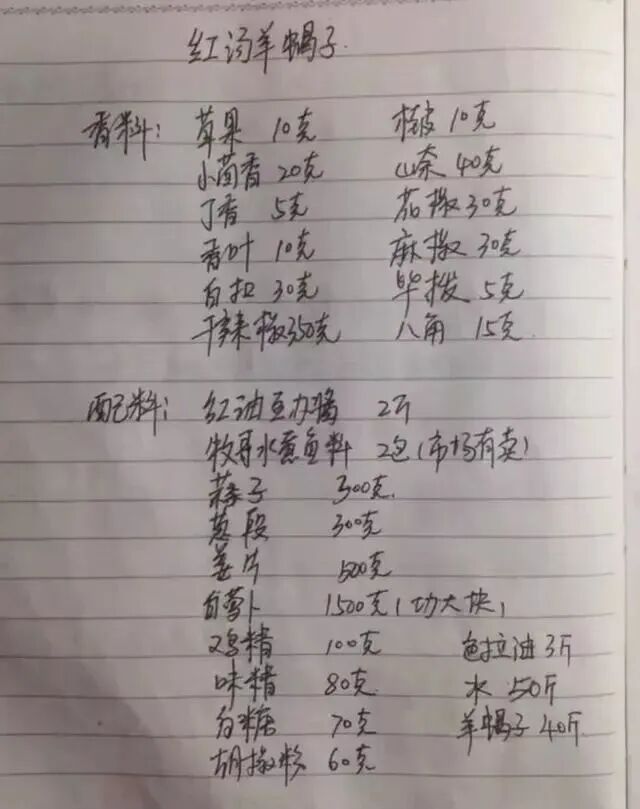 红汤羊蝎子
香料: 草果 10克 桂皮 10克
小茴香 20克 山奈 40克
丁香 5克 花椒 30克
香叶 10克 麻椒 30克
白扣 30克 毕拨 5克
干辣椒 350克 八角 15克
配料: 红油豆办酱 2斤
牧哥水煮鱼料 2包(市场有卖)
蒜子 300克
葱段 300克
姜片 500克
白萝卜 1500克(切大块)
鸡精 100克 色拉油 3斤
味精 80克 水 50斤
白糖 70克 羊蝎子 40斤
胡椒粉 60克